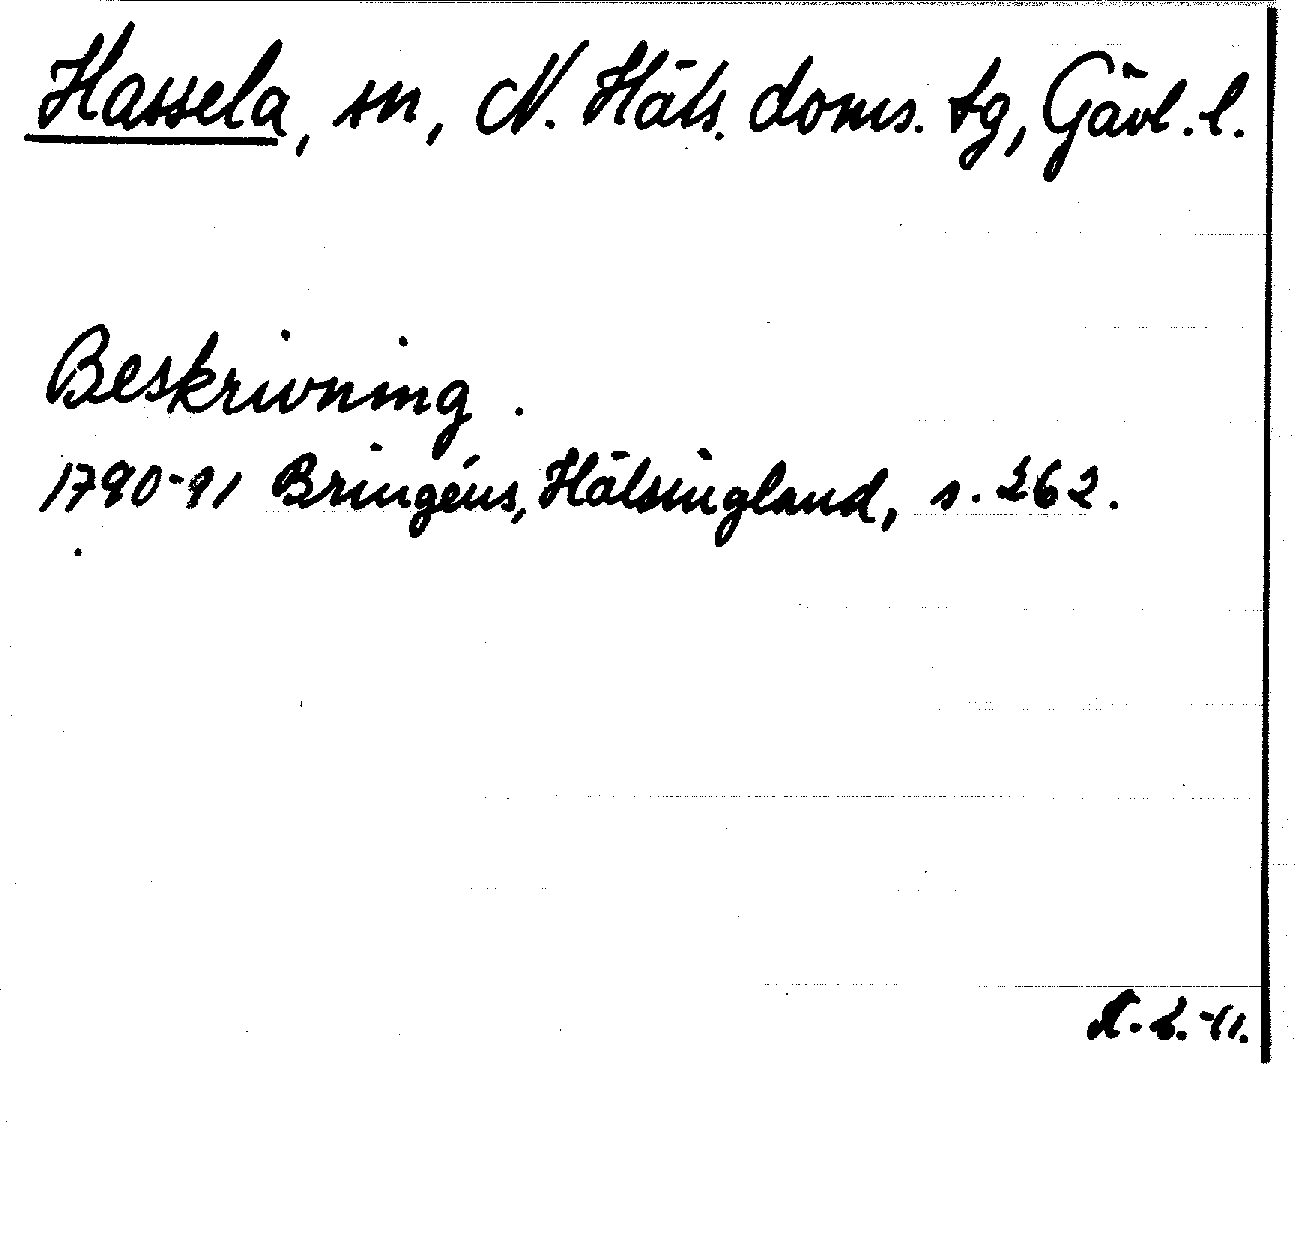 Hassela, sn, N. Häls. doms. tg, Gävl. l.
Beskrivning.
1790-91 Bringéus, Hälsingland, s. 262.